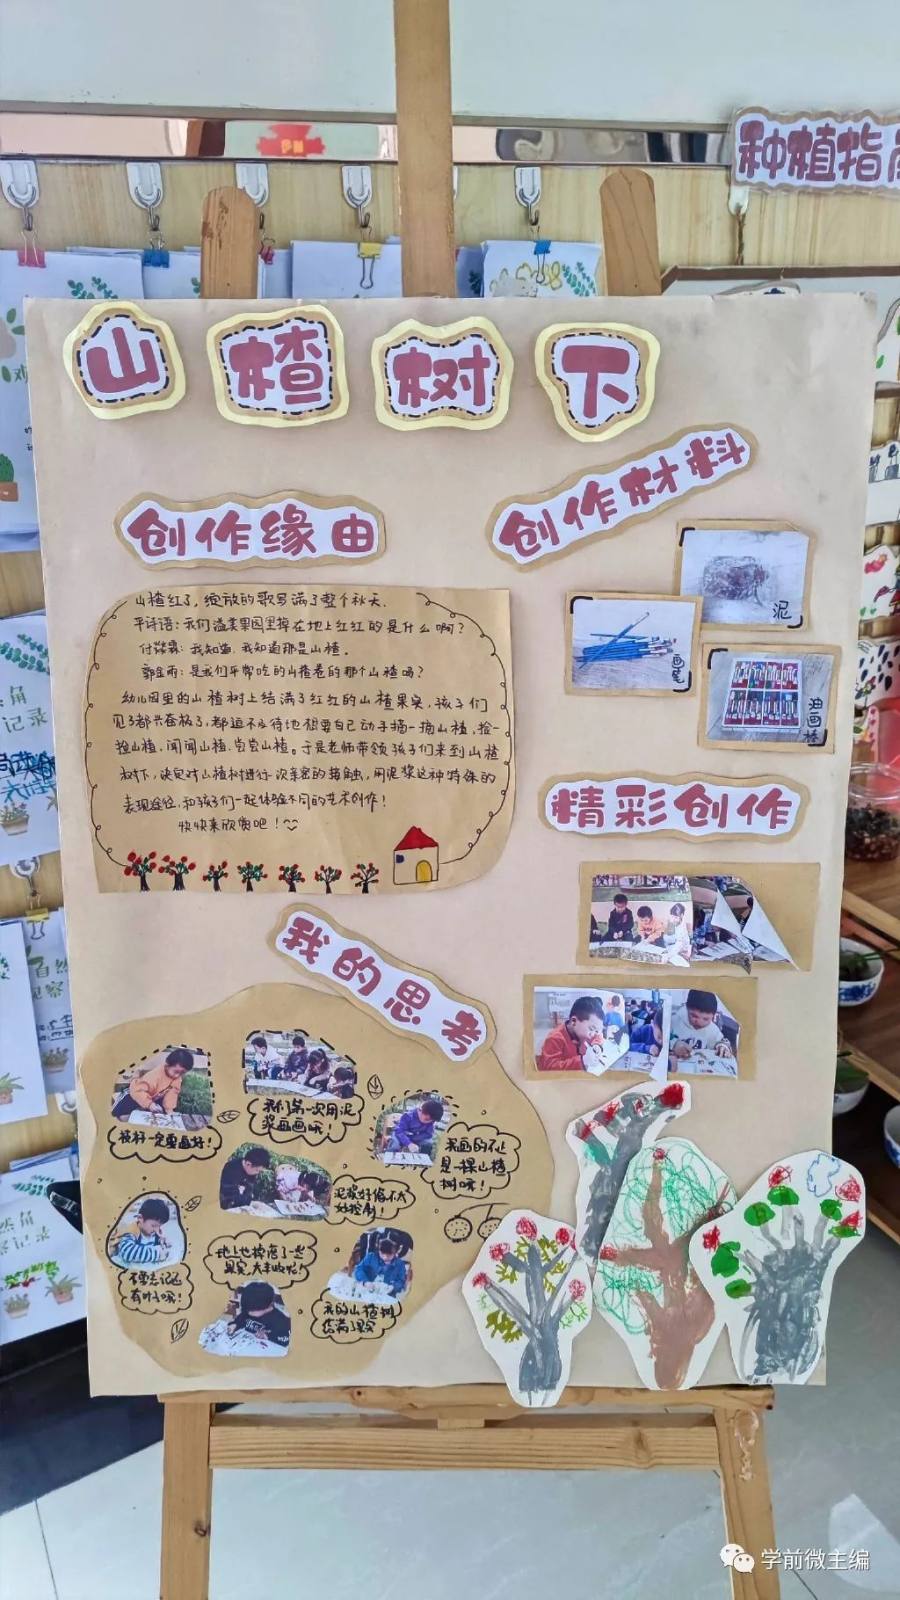 种植指
山楂树下
创作缘由
创作材料
山楂红了，绽放的歌写满了整个秋天.
平诗语：我们溢美果园里掉在地上红红的是什么啊？
我知道，我知道那是山楂.
是我们平常吃的山楂卷的那个山楂吗？
幼儿园里的山楂树上结满了红红的山楂果实，孩子们
见了都兴奋极了，都迫不及待地想要自己动手摘一摘山楂，捡一
捡山楂，闻闻山楂，尝尝山楂。于是老师带领孩子们来到山楂
树下，决定对山楂树进行一次亲密的接触，用泥浆这种特殊的
表现途径，和孩子们一起体验不同的艺术创作！
快快来欣赏吧！
泥
画笔
油画棒
精彩创作
我的思考
枝杆一定要画好！
我们第一次用泥
浆画画哦！
我画的不止
是一棵山楂
树哦！
泥浆好像不太
好控制！
不要忘记还
有叶子呢！
地上也掉落了一些
果实，大丰收啦！
我的山楂树
结满了果实
学前微主编